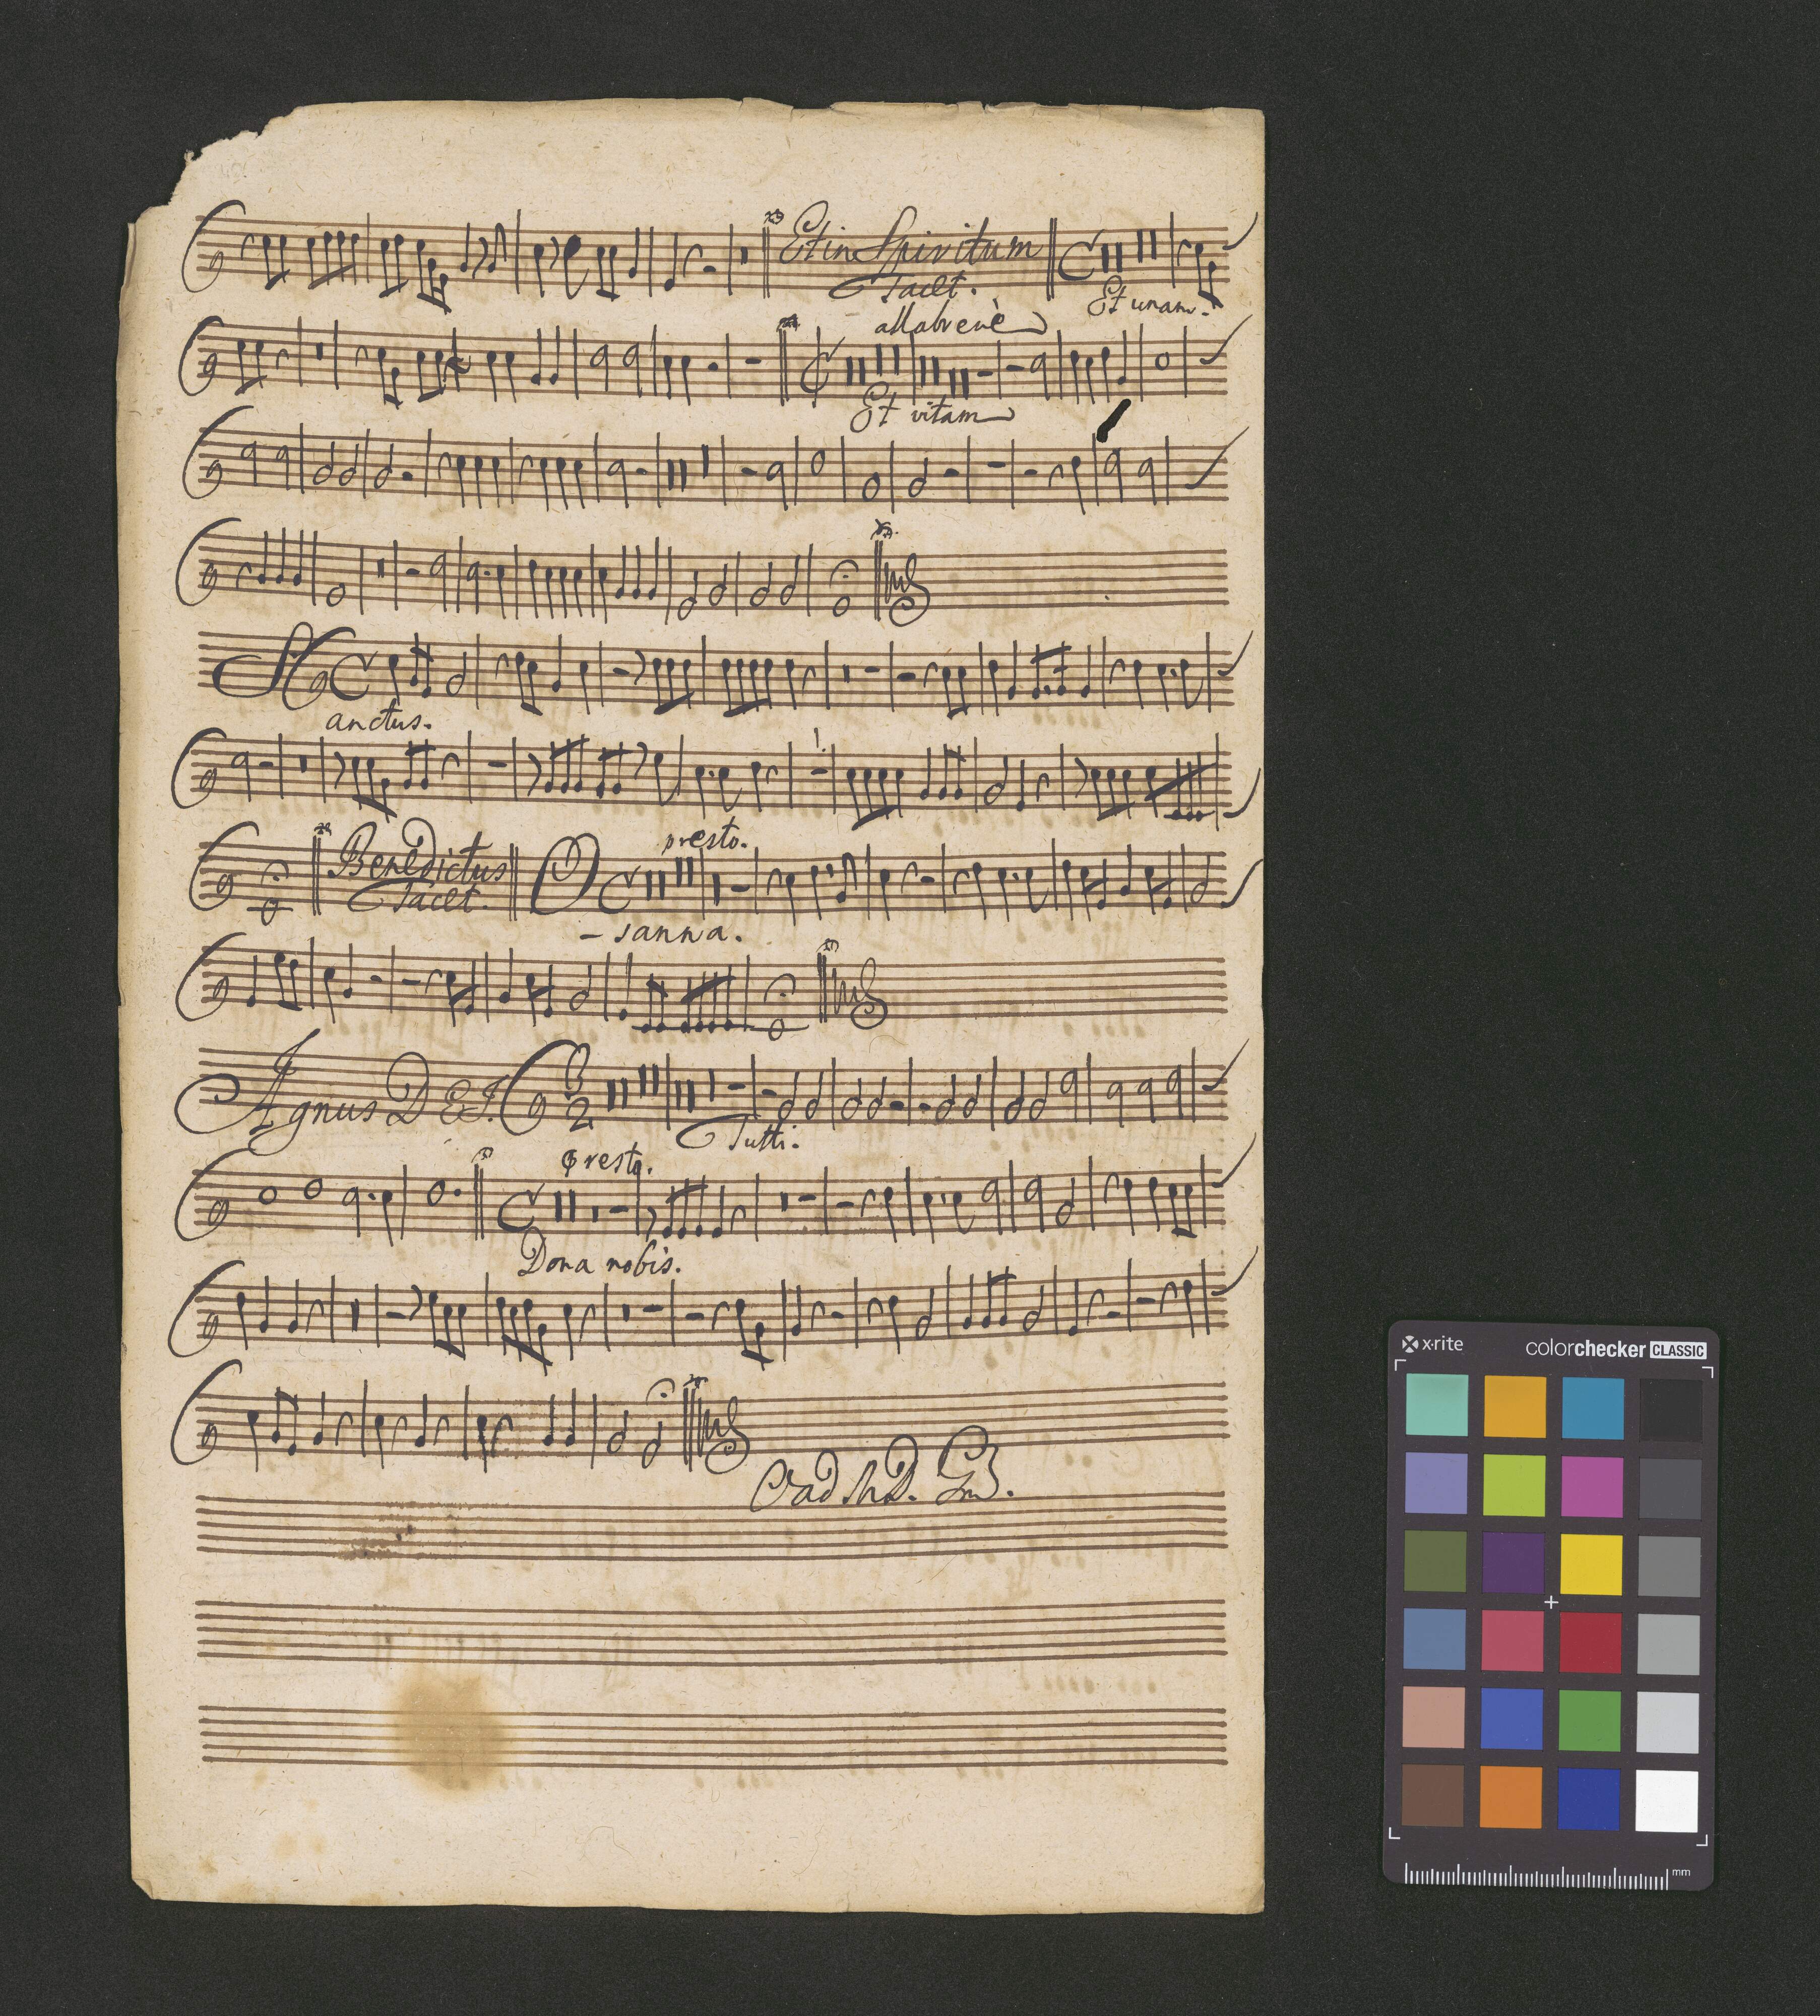 Et in Spiritum
Tacet.
Et unam.
allabreuè
Et vitam
Sanctus.
Benedictus
Tacet.
presto.
O
-sanna.
Agnus DEI.
Tutti.
Presto.
Dona nobis.
x-rite
colorchecker CLASSIC
mm